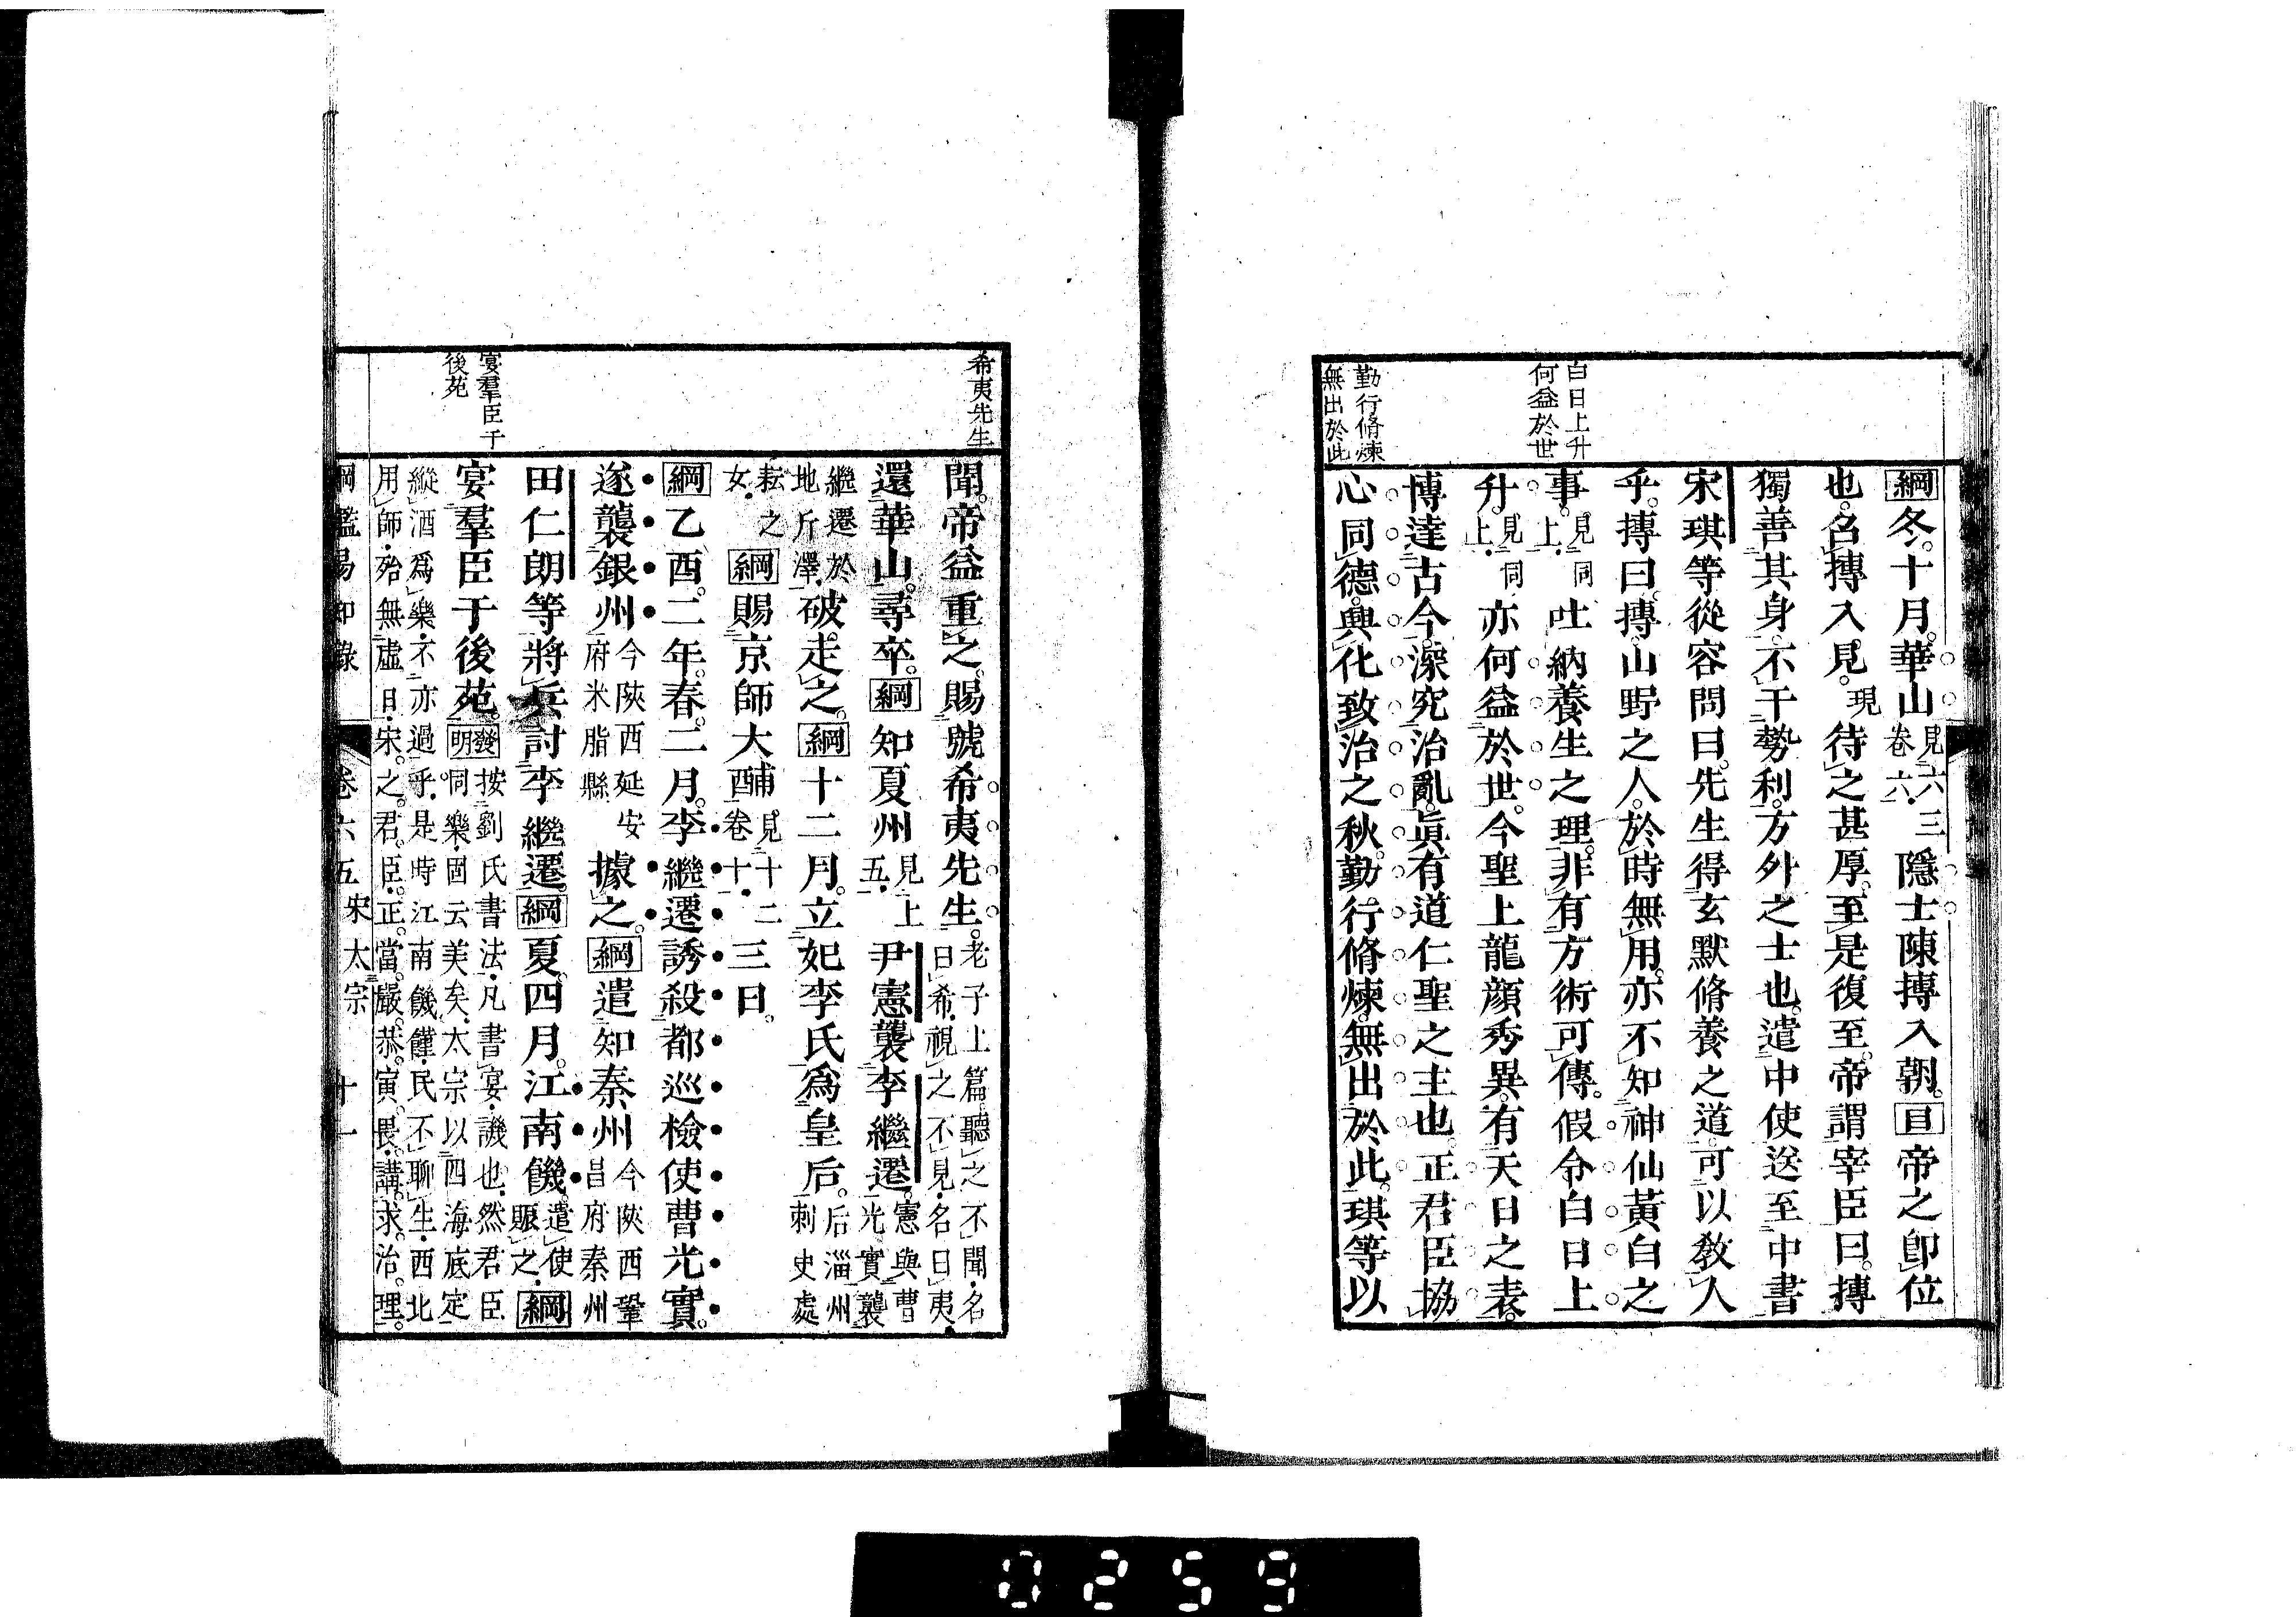 白日上升
何益於世
勤行脩煉
無出於此
綱冬十月華山見六三卷六隱士陳摶入朝目帝之卽位
也召摶入見現待之甚厚至是復至帝謂宰臣曰摶
獨善其身不干勢利方外之士也遣中使送至中書
宋琪等從容問曰先生得玄默脩養之道可以敎人
乎摶曰摶山野之人於時無用亦不知神仙黃白之
事見同上吐納養生之理非有方術可傳假令白日上
升見同上亦何益於世今聖上龍顏秀異有天日之表
博達古今深究治亂眞有道仁聖之主也正君臣協
心同德興化致治之秋勤行脩煉無出於此琪等以
希夷先生
宴羣臣于
後苑
聞帝益重之賜號希夷先生老子上篇聽之不聞名曰希視之不見名曰夷
還華山尋卒綱知夏州見上五尹憲襲李繼遷憲與曹光實襲
繼遷於地斤澤破走之綱十二月立妃李氏爲皇后后淄州刺史處
耘之女綱賜京師大酺見十二卷十三日
綱乙酉二年春二月李繼遷誘殺都巡檢使曹光實
遂襲銀州今陝西延安府米脂縣據之綱遣知秦州今陝西鞏昌府秦州
田仁朗等將兵討李繼遷綱夏四月江南饑遣使賑之綱
宴羣臣于後苑發明按劉氏書法凡書宴譏也然君臣同樂固云美矣太宗以四海底定
縱酒爲樂不亦過乎是時江南饑饉民不聊生西北
用師殆無虛日宋之君臣正當嚴恭寅畏講求治理
綱鑑易知錄 卷六五 宋太宗 十一
0259